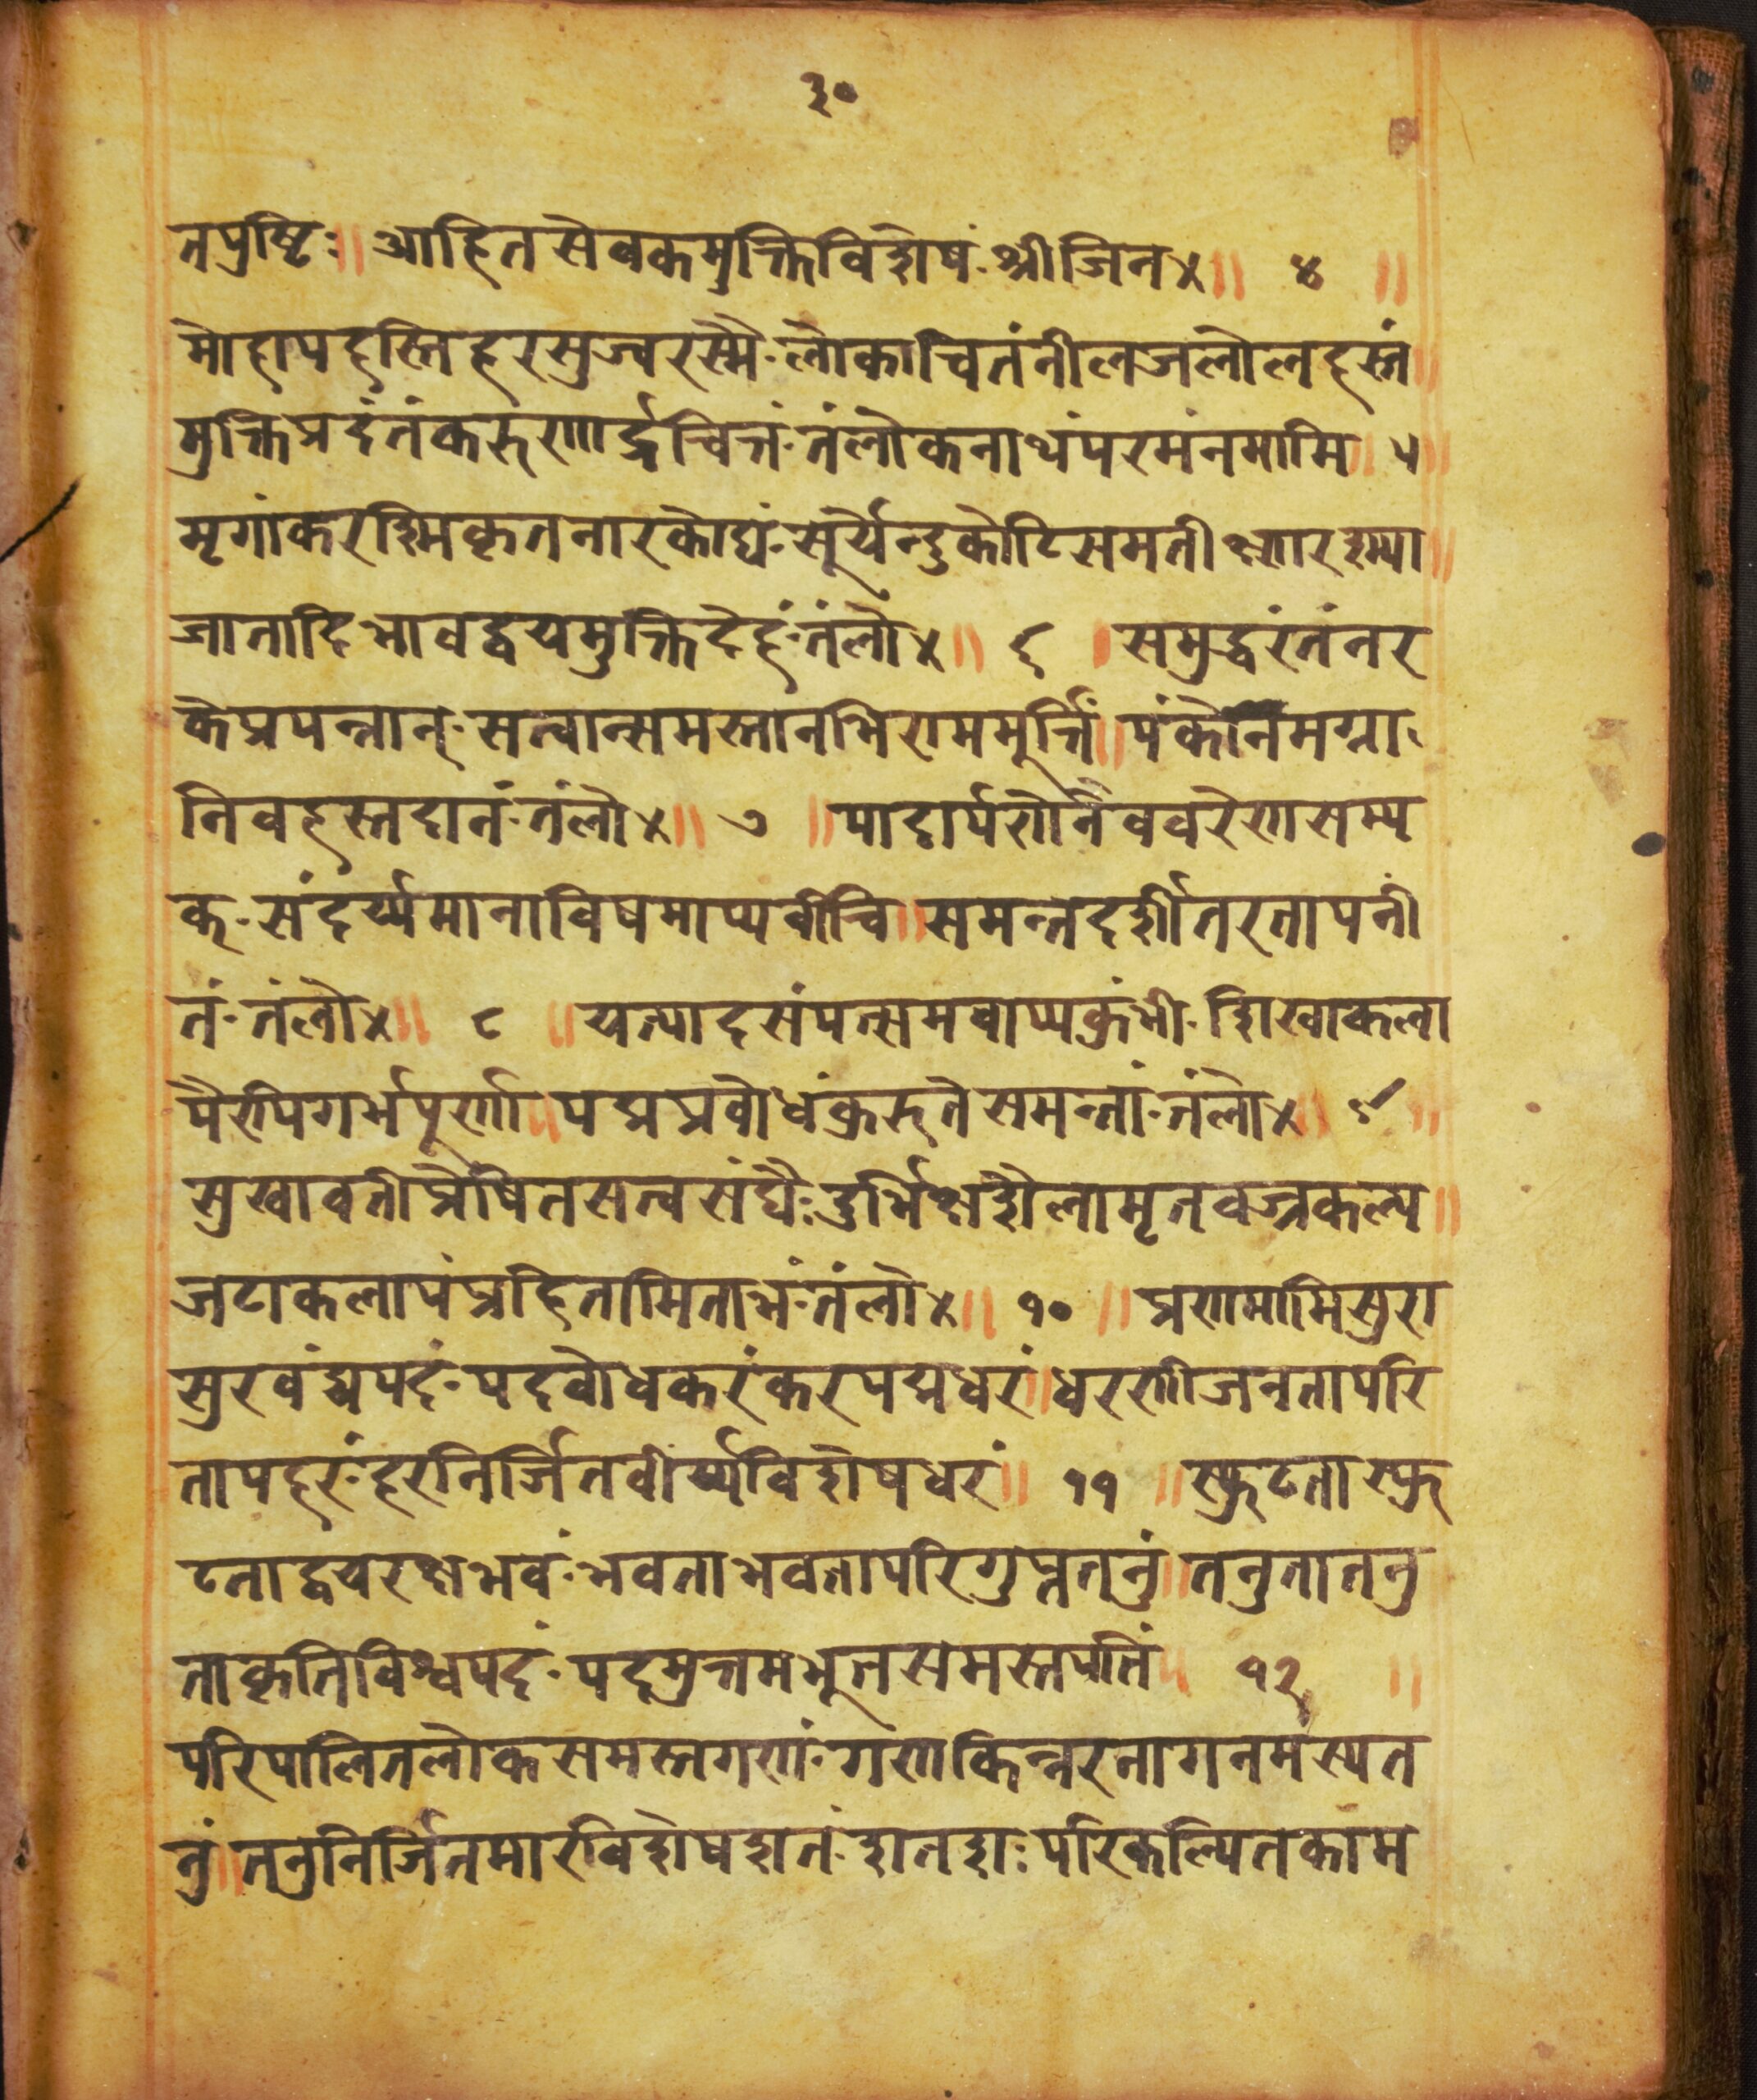 ३०
तपुष्टिः॥ आहितसेवकमुक्तिविशेषं·श्रीजिन४॥ ४ ॥
मोहापहस्तिहरसुज्वरस्मै·लोकाचितंनीलजलोलहस्तं॥
मुक्तिप्रदंतंकरुणार्द्रचित्तं·तंलोकनाथंपरमंनमामि॥ ५॥
मृगांकरश्मिकृतनारकोद्यं·सूर्येन्दुकोटिसमतीक्ष्णरश्म्या॥
जातादिभावद्वयमुक्तिदेहं·तंलो४॥ ६ ॥समुद्धरंतंनर
केप्रपन्नान्·सत्वान्समस्तानभिराममूर्त्तिं॥पंकेनिमग्ना
निवहस्तदानं·तंलो४॥ ७ ॥पादार्पणेनैववरेणसम्य
क्·संदर्य्यमानाविषमाप्यवीचि॥समन्तदर्शीतरतापनी
तं·तंलो४॥ ८ ॥यत्पादसंपत्समवाप्यकुंभी·शिखाकला
पैरुपिगर्भपूर्णा॥पद्मप्रबोधंकुरुतेसमन्तां·तंलो४॥ ९ ॥
सुखावतीप्रेषितसत्वसंघैः·दुर्भिक्षशैलामृतवज्रकल्प॥
जटाकलापंप्रहितामिताभं·तंलो४॥ १० ॥प्रणमामिसुरा
सुरवंद्यपदं·पदबोधकरंकरपद्मधरं॥धरणीजनतापरि
तापहरं·हरनिर्जितवीर्य्यविशेषधरं॥ ११ ॥स्फुटतास्फु
टताद्वयरक्षभवं·भवताभवतापरिगुप्ततनुं॥तनुतातनु
ताकृतिविश्वपदं·पदमुत्तमभूतसमस्तपतिं॥ १२ ॥
परिपालितलोकसमस्तगणं·गणकिन्नरनागनमस्यत
नुं॥तनुनिर्जितमारविशेषशतं·शतशःपरिकल्पितकाम